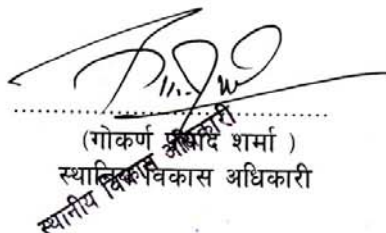 (गोकर्ण प्रसाद शर्मा )
स्थानिय विकास अधिकारी
स्थानीय विकास अधिकारी